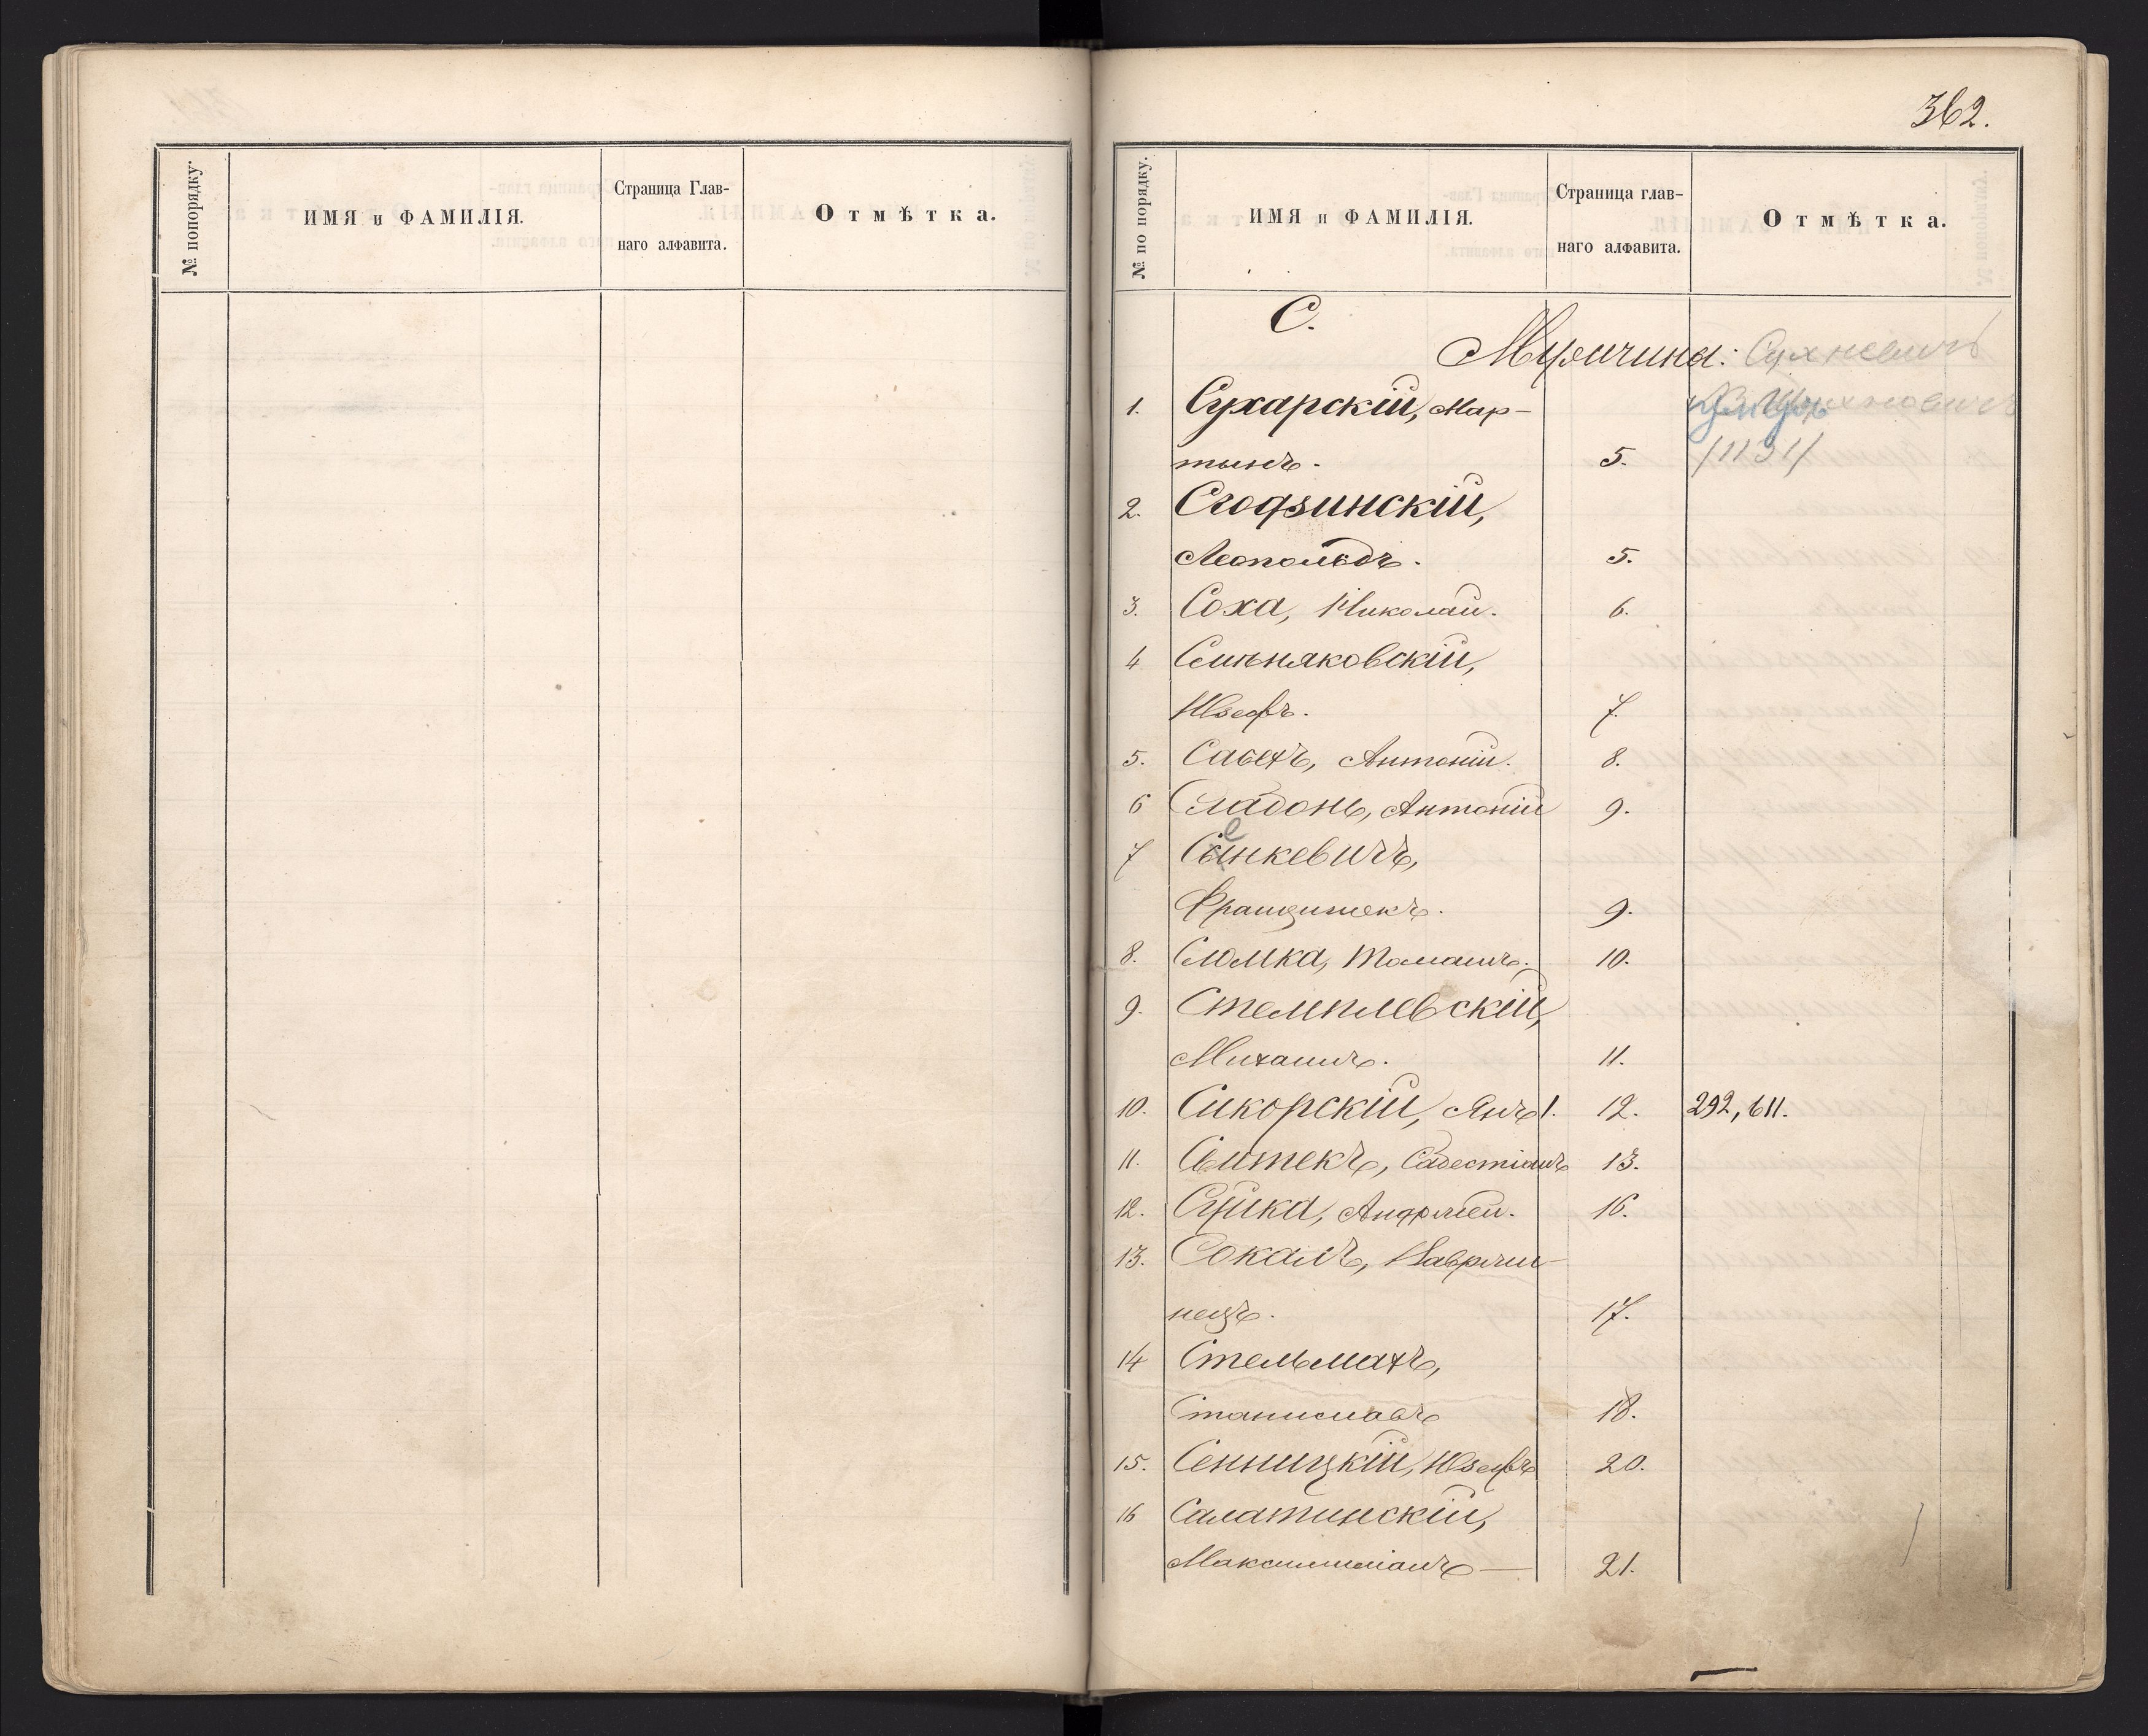 № попорядку.
ИМЯ и ФАМИЛІЯ.
Страница Глав-
наго алфавита.
Отмѣтка.
362.
№ по порядку.
ИМЯ и ФАМИЛІЯ.
Страница глав-
наго алфавита.
Отмѣтка.
С.
Мужчина: Сухневичъ
1. Сухарскій, Мар-
тынъ. 5. /1131/
2. Сгодзинскій,
Леопольдъ. 5.
3. Соха, Николай. 6.
4 Слизьняковскій,
Юзефъ. 7.
5. Антоній. 8.
6 Сладонь, Антоній 9.
7 Сенкевичъ,
Францишекъ. 9.
8. Сломка, Томашъ. 10.
9. Стемплевскій,
Михаилъ. 11.
10. Сикорскій, Янъ 1. 12. 292, 611.
11. Свитекъ, Себестіанъ 13.
12. Суйка, Андржей. 16.
13. Сокалъ, Вавржи-
нецъ. 17.
14 Стельмахъ,
Станиславъ 18.
15. Сенницкій, Юзефъ 20.
16 Салатинскій,
Максимиліанъ — 21.